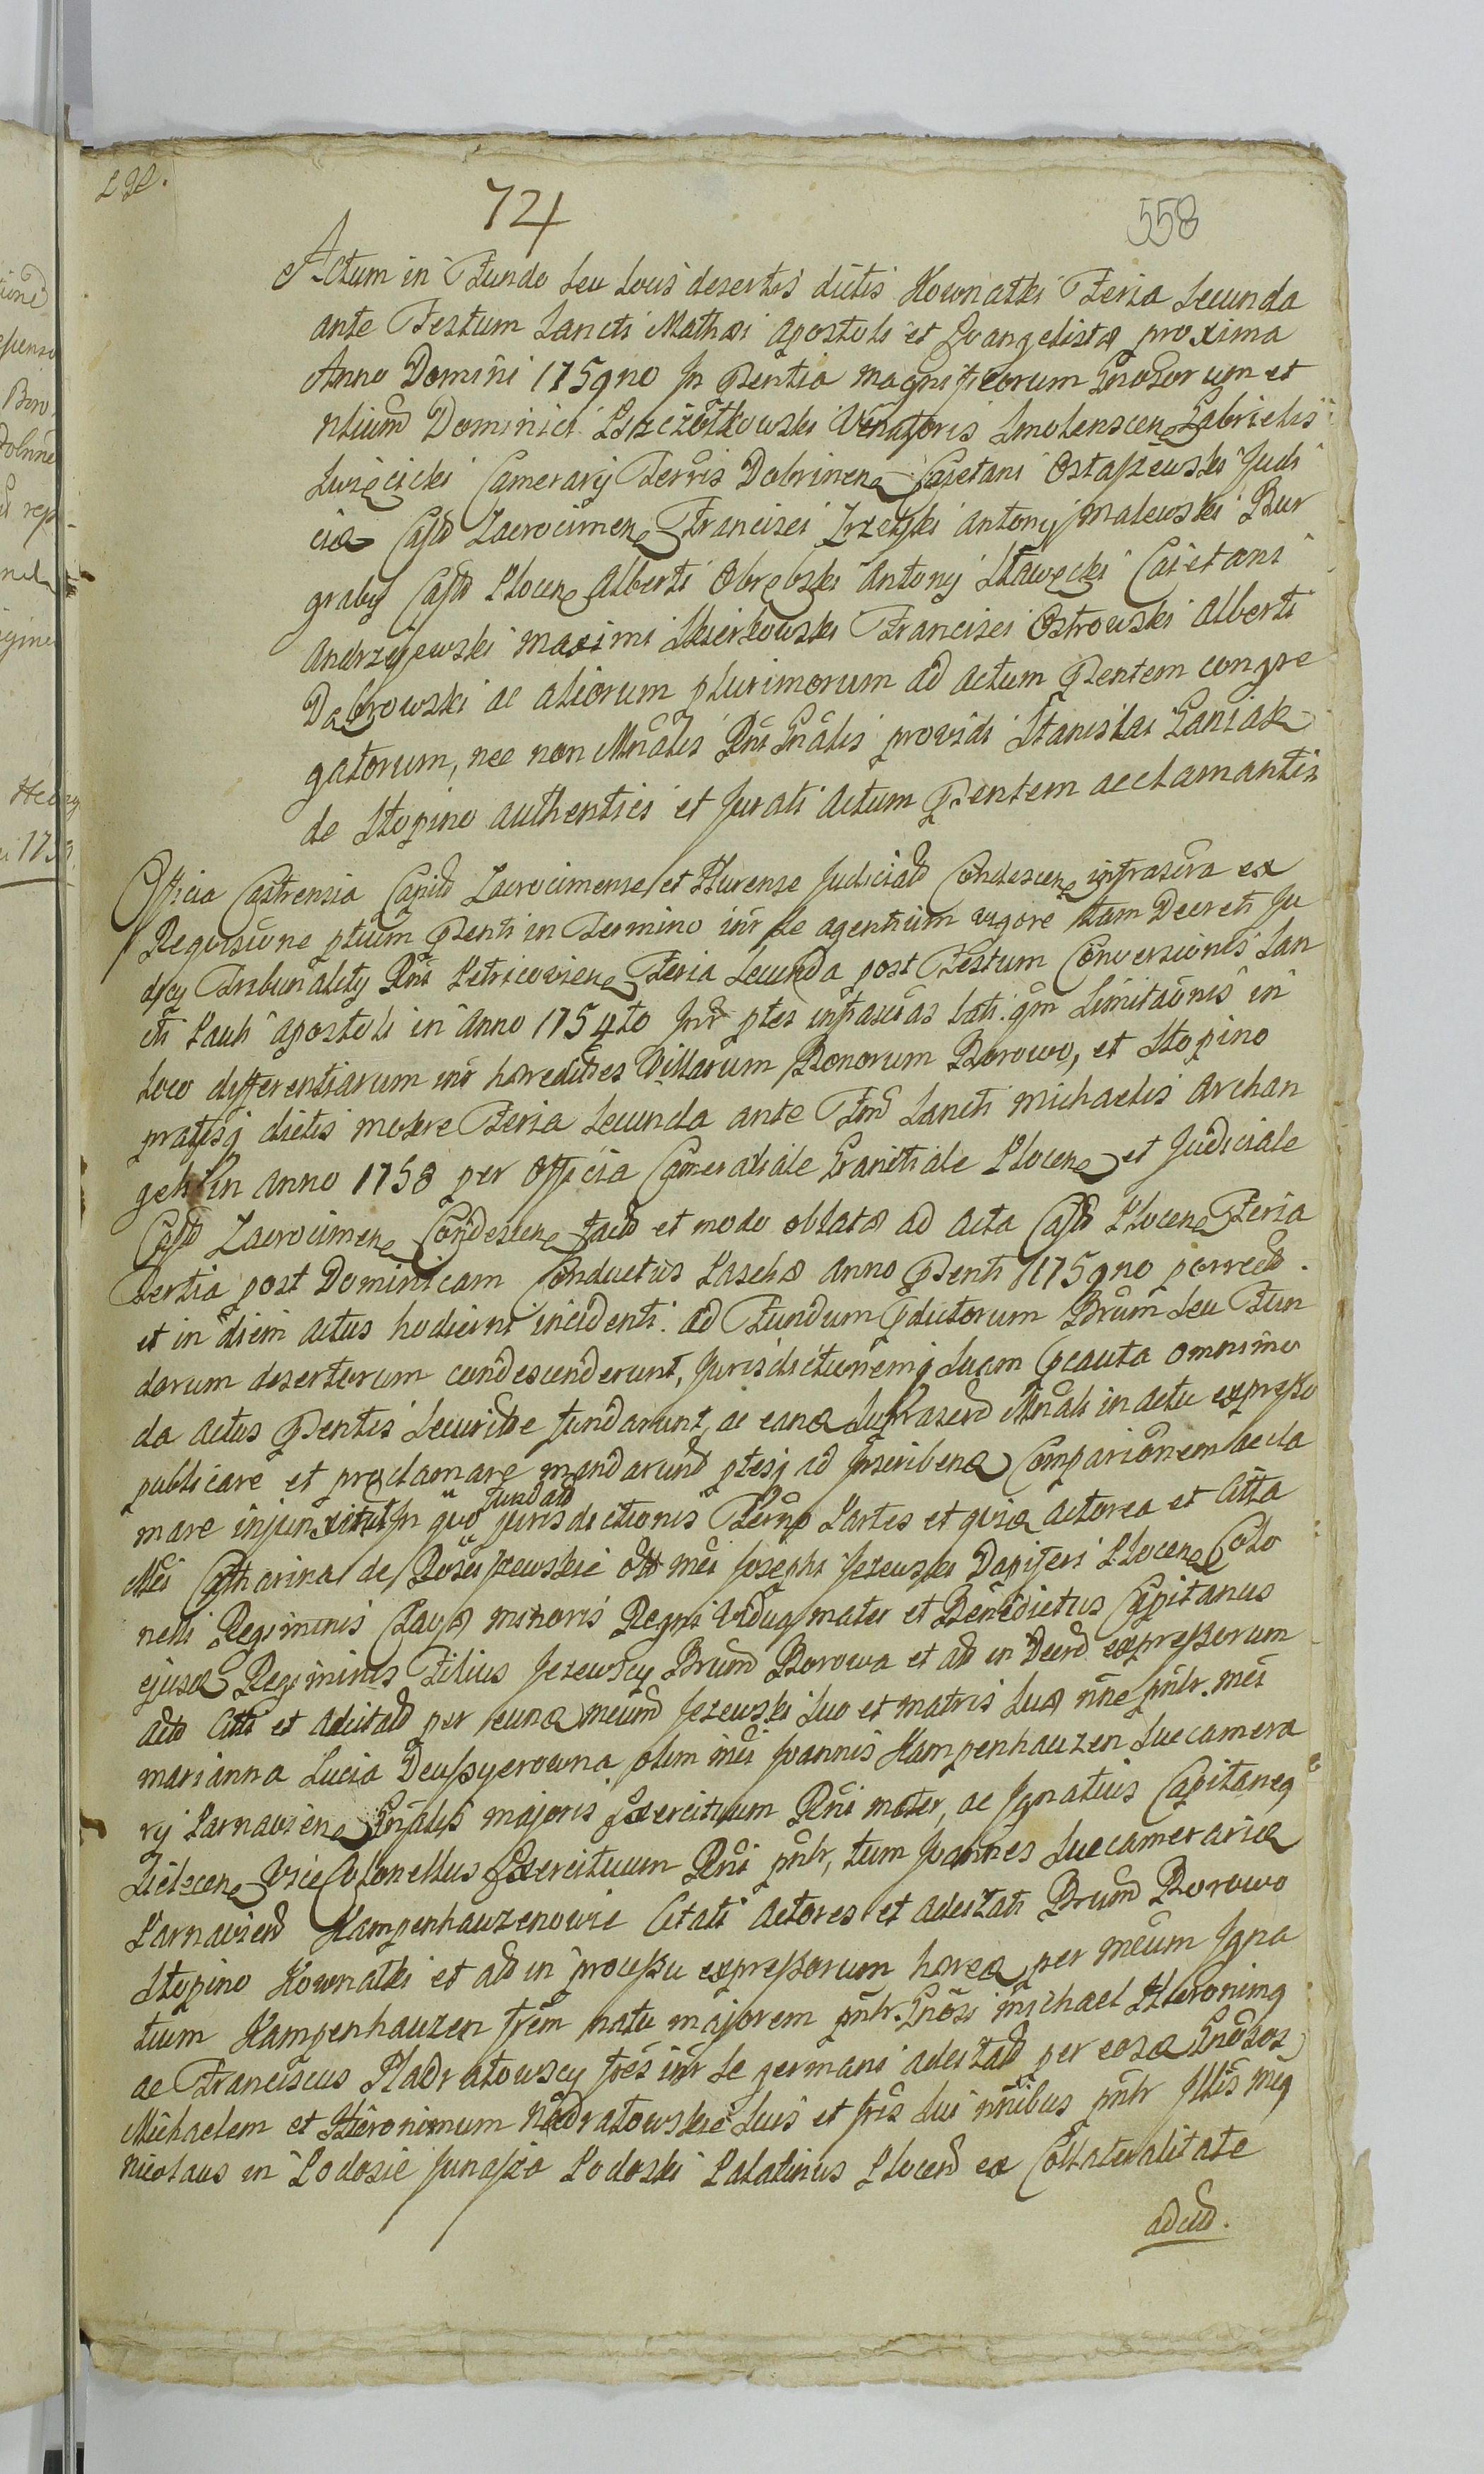 74
558
Actum in Fundo seu locis desertis dictis Kownatki Feria secunda
ante Festum Sancti Mathæi apostoli et Evangelistæ proxima
Anno Domini 1759no In Pñtia magnificorum Gñosorum et
Nlium Dominici Pszczółkowski Venatoris Smolenscen Gabrielis
Świącicki Camerarij Terris Dobrinen Cajetani Ostaszewski Judi
Castr Zacrocimen Francisci antonij Malewski Bur
grabij Castr Plocen Alberti Obrębski Antonij Sławęcki Caietani
Andrzejewski maximi Skierkowski Francisci Ostrowski Alberti
Dąbrowski ac aliorum plurimorum ad actum Pñtem congre
gatorum, nec non Mñalis Rñi Gñalis providi Stanislai Ganiak
de Stopino authentici et Jurati actum Pñtem acclamantis
Officia Castrensia Capit Zacrocimense et Judiciar Condescen infrascra ex
Requisione ptium Pñti in Termino inr se agentium vigore tam Decreti Ju
dicij Tribunalitij Rñi Petricovien Feria secunda post Festum Conversionis San
cti Pauli apostoli in anno 1754to Inr ptes infrascras lati. qm Limitaonis in
loco differentiarum inr hæreditates Villarum Bonorum Borowo, et Stopino
pratisq dictis mokre Feria secunda ante Fm Sancti Michaelis Archan
geli in anno 1758 per Officia Cameratiale Granitiale Plocen et Judiciale
Castr Zacrocimen Condescen fact et modo oblatæ ad acta Castr Plocen Feria
Tertia post Dominicam Conductus Paschæ anno Pñti 1759no porrect.
et in diem actus hodierni incidenti. ad Fundum Pdictorum Brum seu Fun
dorum desertorum condescenderunt, Jurisdictionemq suam Pcauta omnimo
da actus Pñtis securitate fundarunt, ac eand Mñali in actu expresso
publicare et proclamare mandarunt ptesq ad Inscribend Comparionem accla
mare injunxit. In quo fundat jurisdictionis Termo Partes et quid actorea et Citta
Mci Catharina de olim mci Josephi Jezewski Dapiferi Plocen Colo
nelli Regiminis Clavæ minoris Regni Vidua mater et Benedictus Capitanus
ejusd Regiminis Filius Jezewscy Brum Borowa et alr in Decr expressorum
acto Citt et adcitat per eund mcum Jezewski suo et matris suæ nñe pñtr. mci
marianna Lucia olim mci Joannis Kampenhauzen succamera
rij Parnavien Gñalis majoris Exercituum Rñi mater, ac Ignatius Capitaneq
Vice Colonellus Exercituum Rñi pñtr, tum Joannes succamerarid
Parnavien Kampenhauzenowie Citati actores et adcitati Brum Borowo
Stopino Kownatki et alr in processu expressorum hæred per mcum Igna
tium Kampenhauzen frem natu majorem pñtr. Gñosi michael Hieronimq
ac Franciscus Nadratowscy fres inr se germani adcitati per eosd Gñosos
Michaelem et Hieronimum Nadratowskie suis et fris sui nñibus pñtr Illis mcq
Nicolaus in Podosie Junosza Podoski Palatinus Plocen ex Collateralitate
adcit.